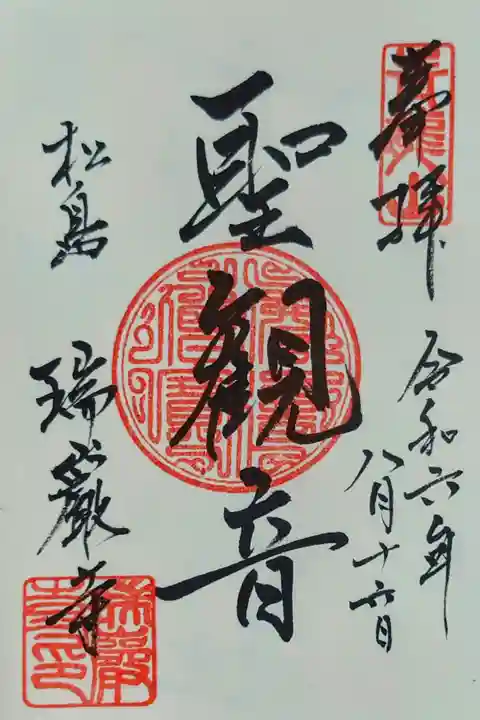 奉拝
令和六年
八月十六日
聖觀音
松島
瑞巖寺